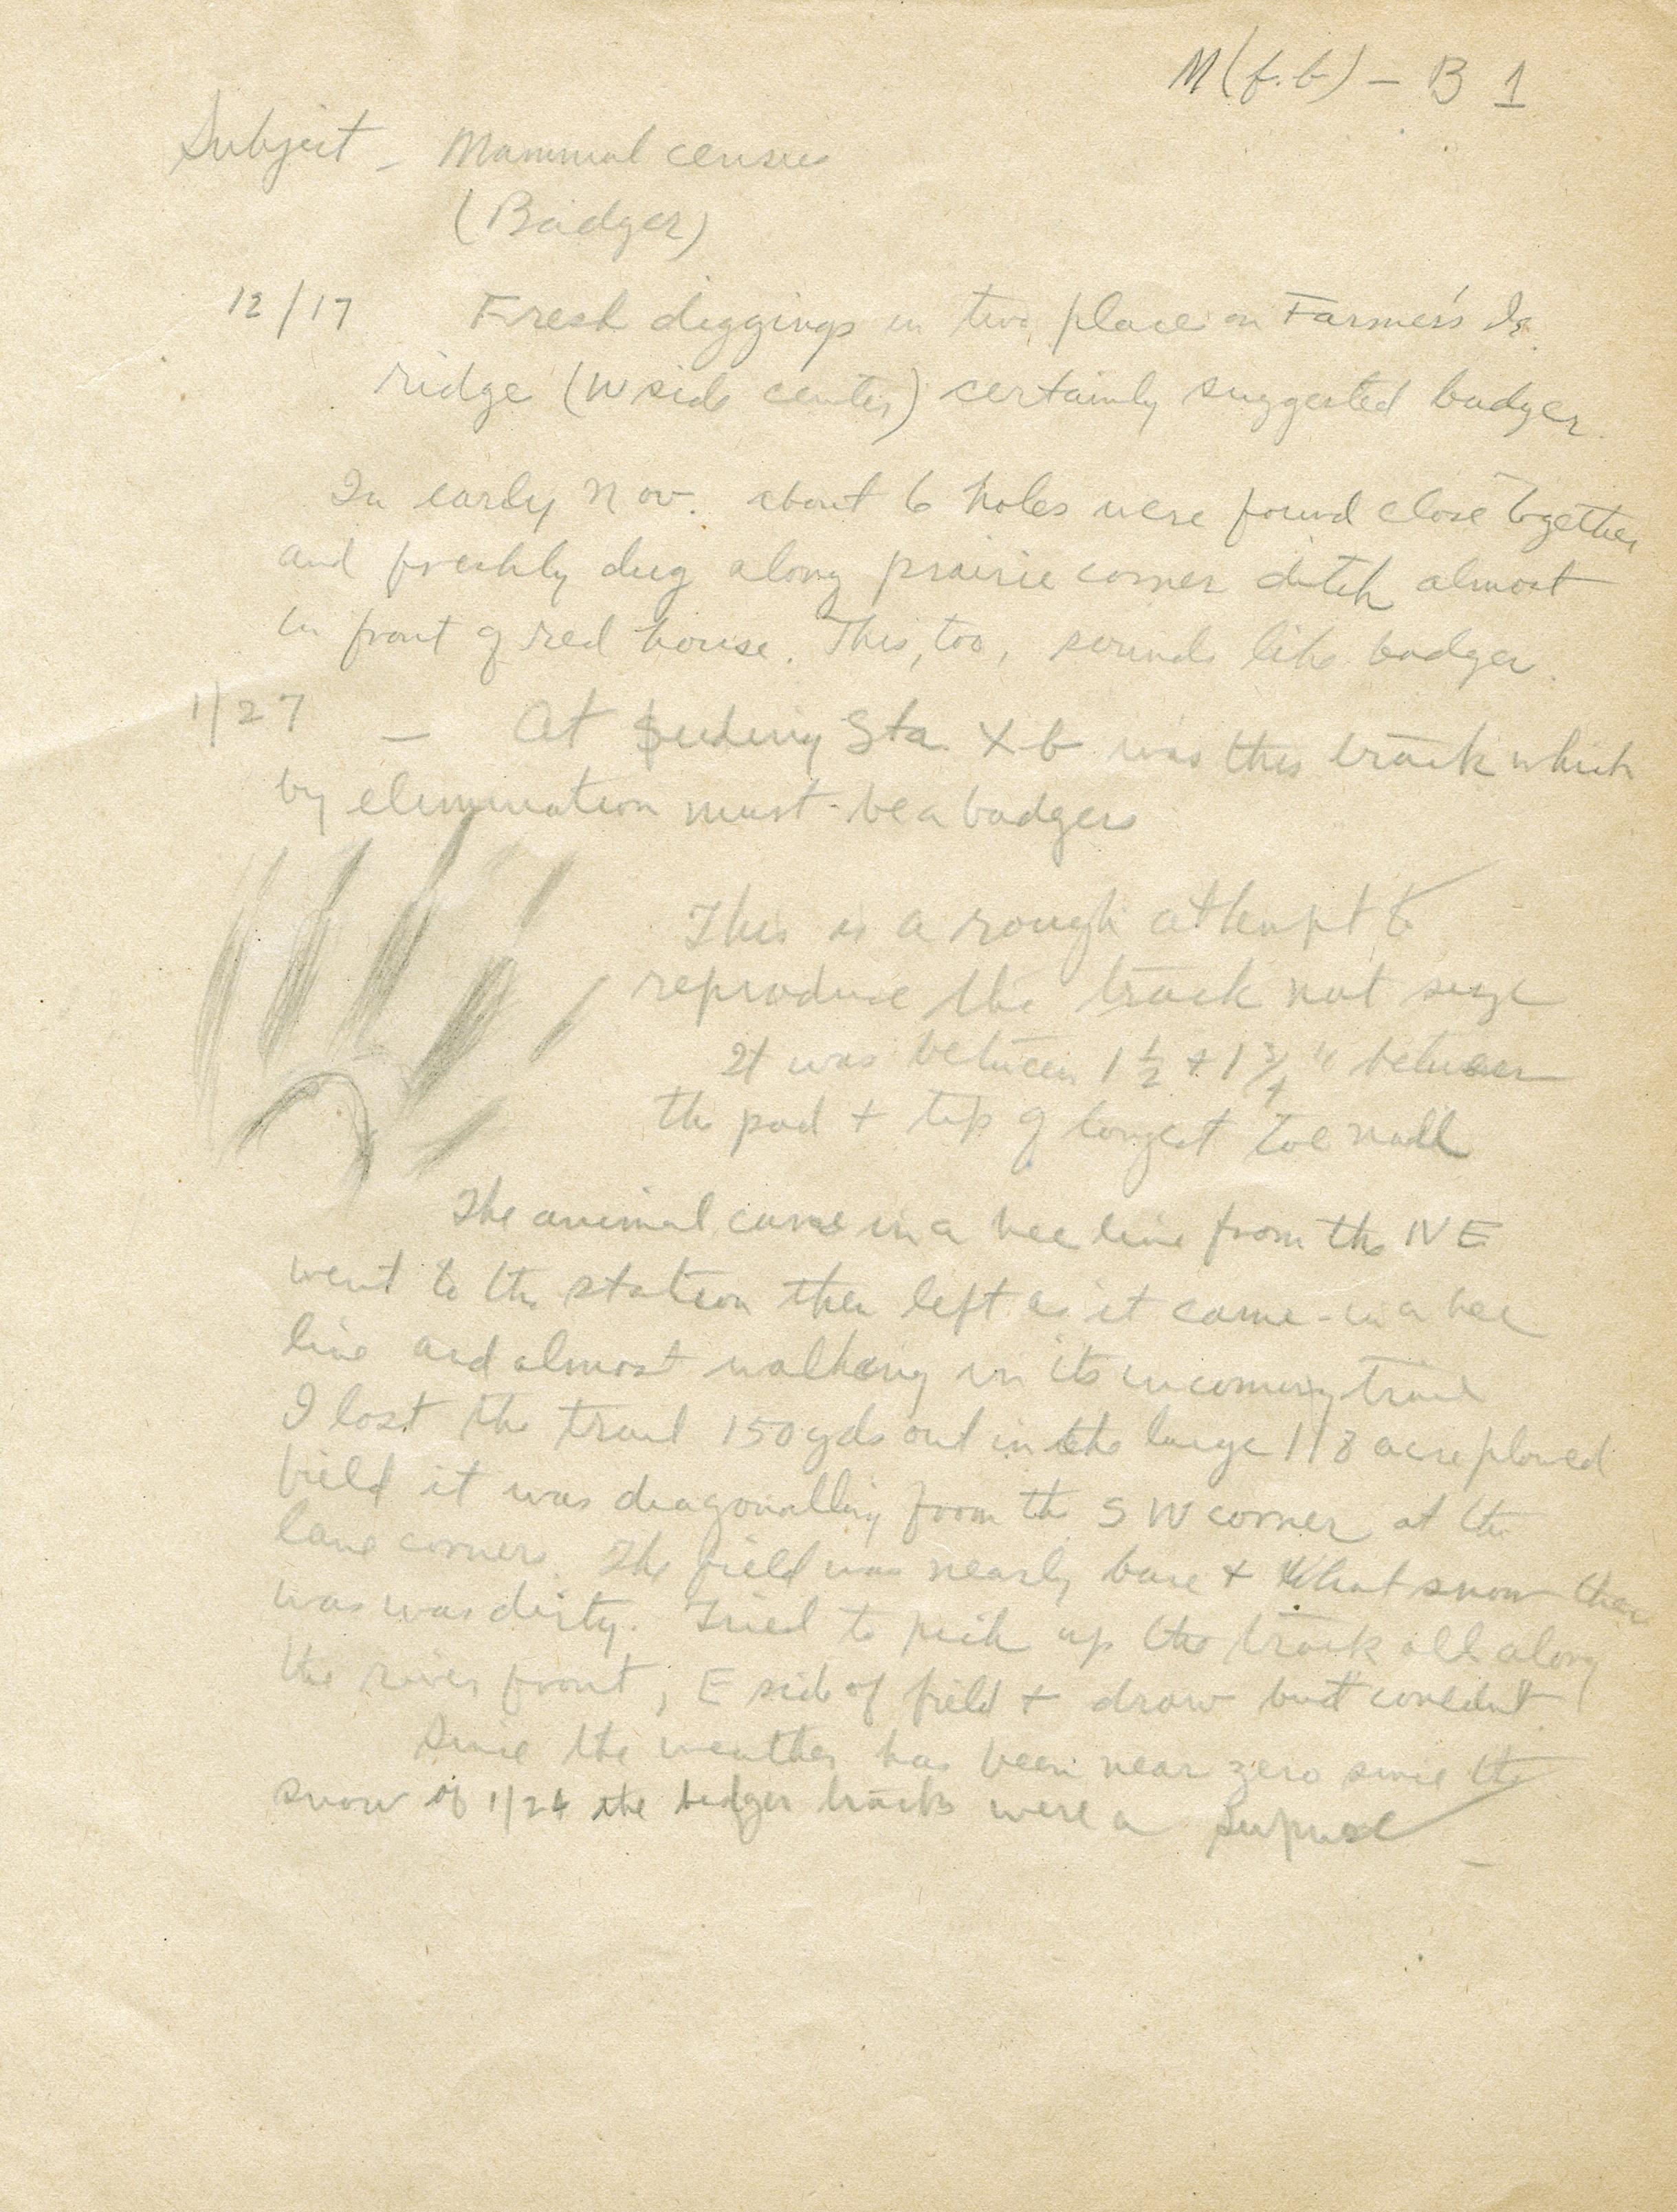 M(f.b) – B 1
Subject – Mammal census
(Badger)
12/17 Fresh diggings in two place on Farmer's Is.
ridge (W side center) certainly suggested badger.
In early Nov. about 6 holes were found close together
and freshly dug along prairie corner ditch almost
in front of red house. This, too, sounds like badger.
1/27 – At feeding Sta X-b was this track which
by elimination must be a badgers
This is a rough attempt to
reproduce the track not size
It was between 1 1/2 + 1 3/4" between
the pad + tip of longest toe nail
The animal came in a bee line from the NE
went to the station then left as it came - in a bee
line and almost walking in its incoming trail
I lost the trail 150 yds out in the large 118 acre plowed
field it was diagonally from the SW corner at the
lane corners. The field was nearly bare + what snow there
was was dirty. Tried to pick up the track all along
the river front, E side of field + draw but couldnt
Since the weather has been near zero since the
snow of 1/24 the badger tracks were a surprise